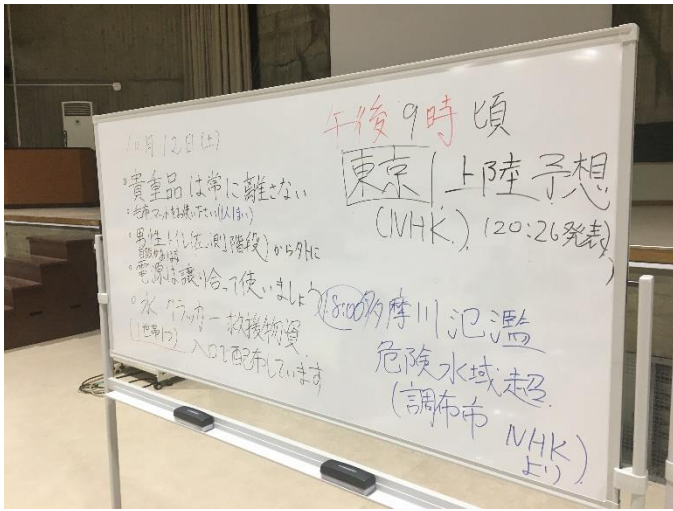 10月12日(土)
・貴重品は常に離さない
・毛布マットをお使いください(1人1まい)
・男性トイレ(左側階段)から外に
・電源は譲り合って使いましょう
・水 クラッカー 救援物資
(1世帯1つ) 入口で配布しています
午後9時頃
東京 上陸予想
(NHK) (20:26発表)
18:00 多摩川氾濫
危険水域超
(調布市 NHK
より)